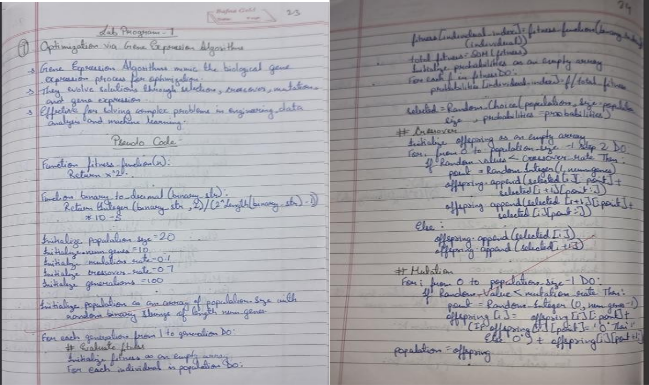 23
Lab Program-1
① Optimization via Gene Expression Algorithms
→ Gene Expression Algorithms mimic the biological gene
expression process for optimization.
→ They evolve solutions through selection, crossover, mutation
and gene expression.
→ Effective for solving complex problems in engineering, data
analysis and machine learning.
Pseudo Code
Function fitness-function(x):
Return x^2
Function binary-to-decimal (binary_str):
Return integer (binary_str, 2)/(2^length(binary_str)-1)
*10-5
Initialize population size=20
Initialize num genes=10
Initialize mutation rate=0.1
Initialize crossover rate=0.7
Initialize generations=100
Initialize population as an array of population size with
random binary strings of length num genes
For each generation from 1 to generation DO:
# Evaluate fitness
Initialize fitness as an empty array
For each individual in population DO:
24
fitness[individual index]=fitness-function(binary
(individual))
total fitness=SUM(fitness)
Initialize probabilities as an empty array
For each f in fitness DO:
probabilities[individual index]=f/total fitness
selected=Random.Choice(population, size=population
size, probabilities=probabilities)
# Crossover
Initialize offspring as an empty array
For i from 0 to population-size -1 Step 2 DO
If Random value < crossover-rate Then:
point = Random Integer (1, num genes)
offspring.append(selected[i][:point]+
selected[i+1][point:])
offspring.append(selected[i+1][:point]+
selected[i][point:])
Else:
offspring.append(selected[i])
offspring.append(selected[i+1])
# Mutation
For i from 0 to population-size-1 DO:
If Random-Value < mutation-rate Then:
point = Random-Integer (0, num gene-1)
offspring[i] = offspring[i][:point]+
(If offspring[i][point]='0' Then '1'
Else '0') + offspring[i][point+1:]
population = offspring